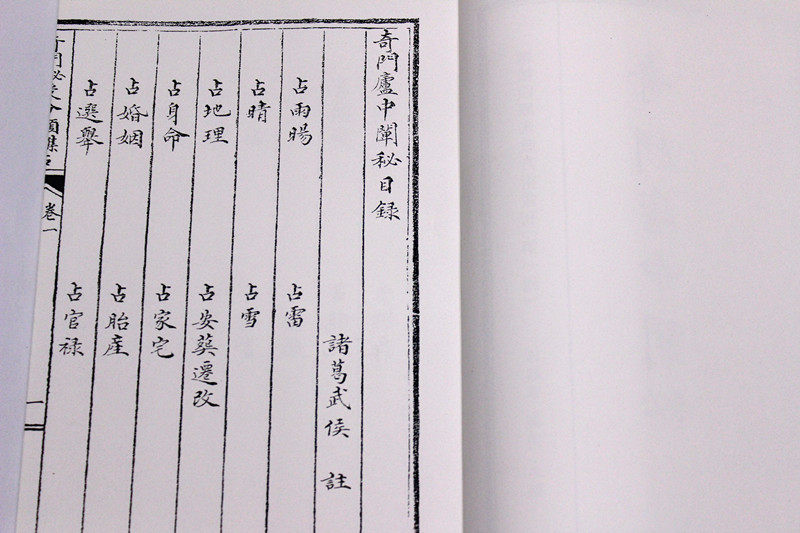 奇門廬中闡秘目録
諸葛武侯 註
占雨暘 占雷
占晴 占雪
占地理 占安葬遷改
占身命 占家宅
占婚姻 占胎産
占選舉 占官禄
卷一
一